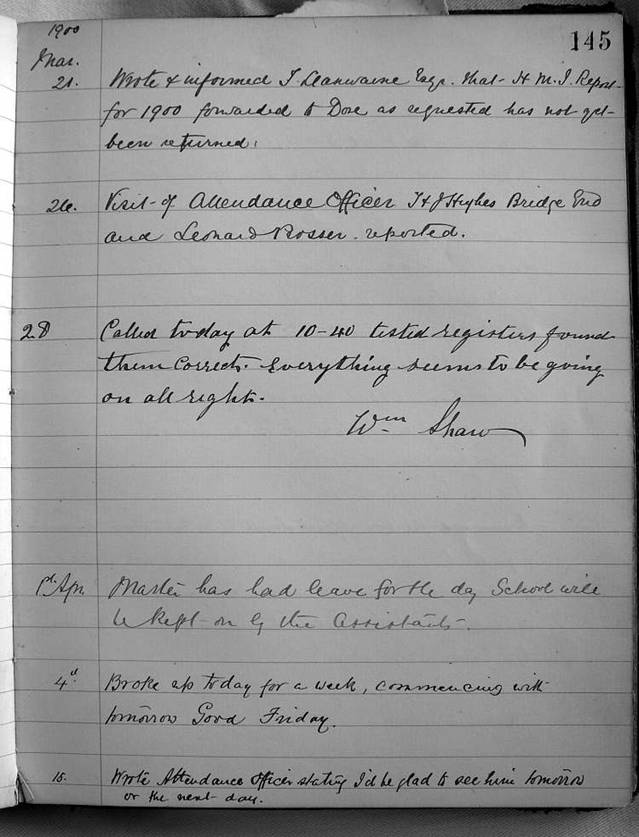 1900
145
Mar.
21. Wrote & informed J. Esqr. that H M. I. Report
for 1900 forwarded to Dore as requested has not yet
been returned.
26. Visit of Attendance Officer H J Hughes Bridge End
and Leonard Rosser reported.
28 Called today at 10-40 tested registers found
them correct. Everything seems to be going
on all right.
Wm Shaw
1st Apr. Master has had leave for the day School will
be kept on by the Assistants.
4th Broke up today for a week, commencing with
tomorrow Good Friday.
15. Wrote Attendance Officer stating I'd be glad to see him tomorrow
or the next day.